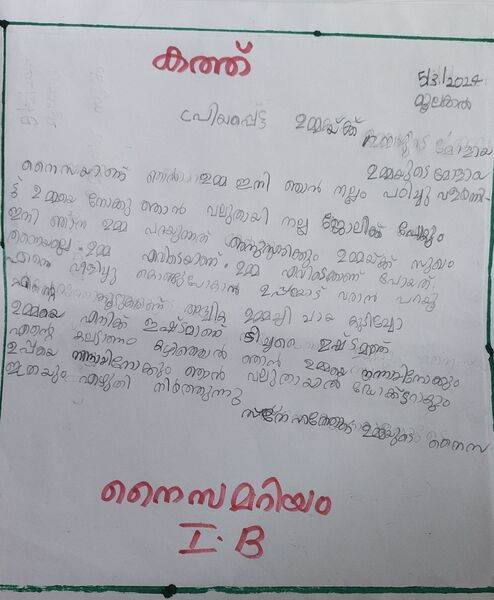 കത്ത്
5/3/2024
മൂലക്കൽ
പ്രിയപ്പെട്ട ഉമ്മയ്ക്ക്
ഉമ്മയുടെ മോളായ
നൈസയാണ് ഉമ്മ ഇനി ഞാൻ നല്ലം പഠിച്ചു വളർന്നി-
ട്ട് ഉമ്മയെ നോക്കു ഞാൻ വലുതായി നല്ല ജോലിക്ക് പോയും
ഇനി ഞാന ഉമ്മ പറയുന്നത് അനുസ്സരിക്കും ഉമ്മയ്ക്ക് സുഖം
തന്നെയല്ലേ. ഉമ്മ എവിടെയാണ്. ഉമ്മ എവിടെത്താണ് പോയത്.
എന്നെ വിളിച്ചു കൊണ്ടുപോകാൻ ഉപ്പയോട് വരാൻ പറയൂ
എന്റെ ഉമ്മച്ചി ചായ കുടിച്ചോ
ഉമ്മയെ എനിക്ക് ഇഷ്ടമാണ് ടീച്ചറെ ഇഷ്ടമാണ്
എന്റെ കല്യാണം കഴിഞ്ഞാൽ ഞാൻ ഉമ്മയെ നന്നായിനോക്കും
ഉപ്പയെ നന്നായിനോക്കും ഞാൻ വലുതായാൽ ഡോക്ട്ടറാകും
ഇത്രയും എഴുതി നിർത്തുന്നു
സ്നേഹത്തോടെ ഉമ്മയുടെ നൈസ
നൈസ മറിയം
I. B